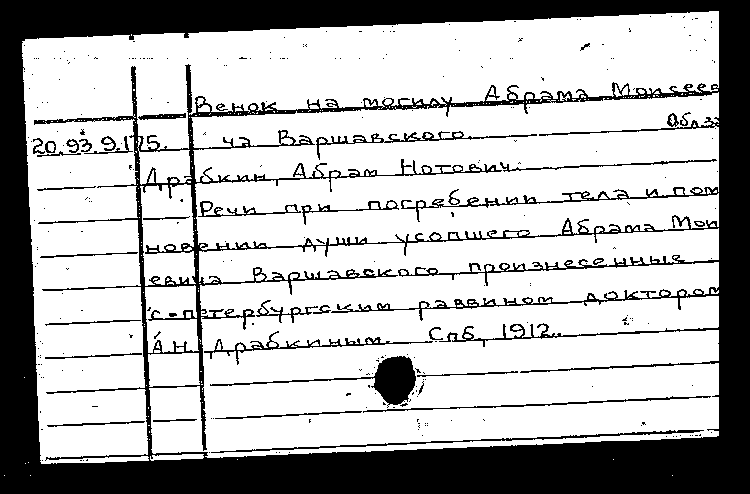 Венок на могилу Абрама Моисее
20.93.9.175. ча Варшавского. Обл. за
Драбкин, Абрам Нотович.
Речи при погребении тела и пом
новении души усопшего Абрама Мои
евича Варшавского, произнесенные
с-петербургским раввином доктором
А.Н. Драбкиным. Спб, 1912.